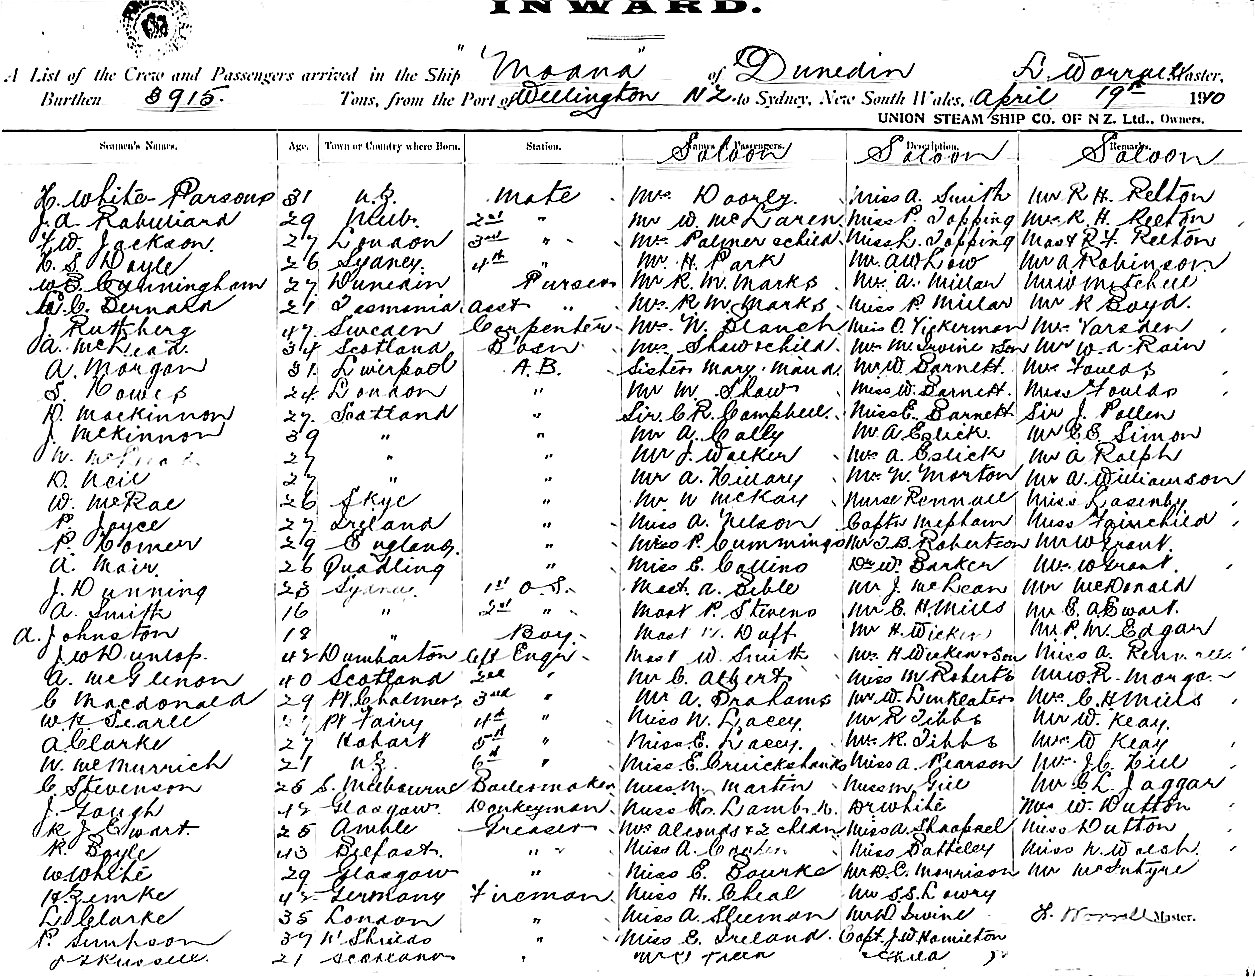 INWARD.
A List of the Crew and Passengers arrived in the Ship "Moana" of Dunedin L. Worrall Master,
Burthen 3915. Tons, from the Port of Wellington NZ to Sydney, New South Wales, April 19th 1910
UNION STEAM SHIP CO. OF N Z. Ltd., Owners.
Seamen's Names. Age. Town or Country where Born. Station. Names of Passengers. Saloon Description. Saloon Remarks. Saloon
H. White-Parsons 31 N.Z. Mate Mrs Doorly. Miss A. Smith Mr R H. Relton
J.A Rabuliard 29 Melb. 2nd " Mr W. McLaren Miss P. Topping Mrs R H. Relton
F.W. Jackson. 27 London 3rd " Mrs Palmer & child Miss L. Topping Mast R.F. Relton
H. S. Doyle 26 Sydney. 4th " Mr. H. Park Mr. A W Low Mr A. Robinson
W.E. Cunningham 27 Dunedin Purser Mr R. M. Marks Mrs A. Millar Mr W Mitchell
C. Bernard 21 Tasmania asst " Mrs R M. Marks Miss P. Millar Mr R Boyd.
J. Ruthberg 47 Sweden Carpenter Mrs N. Blanch Miss O. Vickerman Mrs Varsden
A. McLead. 34 Scotland Bosn Mrs Shaw & child. Mrs M. Irvine & Son Mr W.A. Rain
A. Morgan 31 Liverpool A.B. Sister Mary Maud Mr W Barnett. Mrs Foulds
S. Howes 24 London " Mr M. Shaw Miss W. Barnett. Miss Foulds
D. Mackinnon 27 Scotland " Sir. C R. Campbell. Miss E. Barnett Sir J. Pollen
J. McKinnon 39 " " Mr A. Cally Mr A Eslick. Mr E E Simon
N. 27 " " Mr J. Walker Mrs A. Eslick Mr A Ralph
D. Neil 27 " " Mr A. Hillary Mr N. Morton Mr A. Williamson
W. McRae 26 Skye " Mr W McKay Nurse Rennall Miss Lasenby
P. Joyce 27 Ireland " Miss A. Nelson Captn Mepham Miss Fairchild
P. Homer 29 England. " Miss P. Cummings Mr T.B. Robertson Mr W Grant.
A. Mair. 26 Quadling " Miss E. Collins Dr W. Barker Mrs W Grant.
J. Dunning 23 Sydney 1st O.S. Mast. A. Bible Mr J. McLean Mr McDonald
A. Smith 16 " 2nd " Mast P. Stevens Mr E H. Mills Mr E. A Ewart.
A. Johnston 18 " Boy Mast Duff Mr H. Wicken Mr P. M. Edgar
J W Dunlop. 42 Dumbarton Cheif Engr Mast W. Smith Mrs H Wicken & Son Miss A.
A. McGlinon 40 Scotland 2nd " Mr C. Albert Miss M Roberts Mr W.R. Morgan
C Macdonald 29 Pt Chalmers 3rd " Mr A. Brahams Mr W. Linklater Mrs C H Mills
W. H. Searle Pt Fairy 4th " Miss N. Lacey Mr R Tibbs Mr W. Keay.
A Clarke 27 Hobart 5th " Miss E. Lacey. Mrs R Tibbs Mrs W Keay
N. McMurrich 21 N.Z. 6th " Miss E. Cruickshanks Miss A. Pearson Mr J. C. Hill
C Stevenson 25 S. Melbourne Boilermaker Miss M. Martin Miss M Gill Mr C L. Jaggar
J. Gough 42 Glasgow. Donkeyman Miss Lamb Dr White Mrs W. Dutton
R J. Ewart. 25 Amble Greaser Mrs & 2 children Miss A. Miss Dutton
R. Boyle 43 Belfast. " Miss A. Miss Batteley Miss N. Walsh.
W White 29 Glasgow " Miss E. Bourke Mr D. C. Morrison Mr McIntyre
H. Zemke 42 Germany Fireman Miss H. Cheal Mr S.S. Lowry
L. Clarke 35 London " Miss A. Sleeman Mr D Irvine L. Worrall Master.
P. Simpson 37 N Shields " Miss E. Ireland. Capt. J.W Hamilton
Russell. 21 Scotland " Green